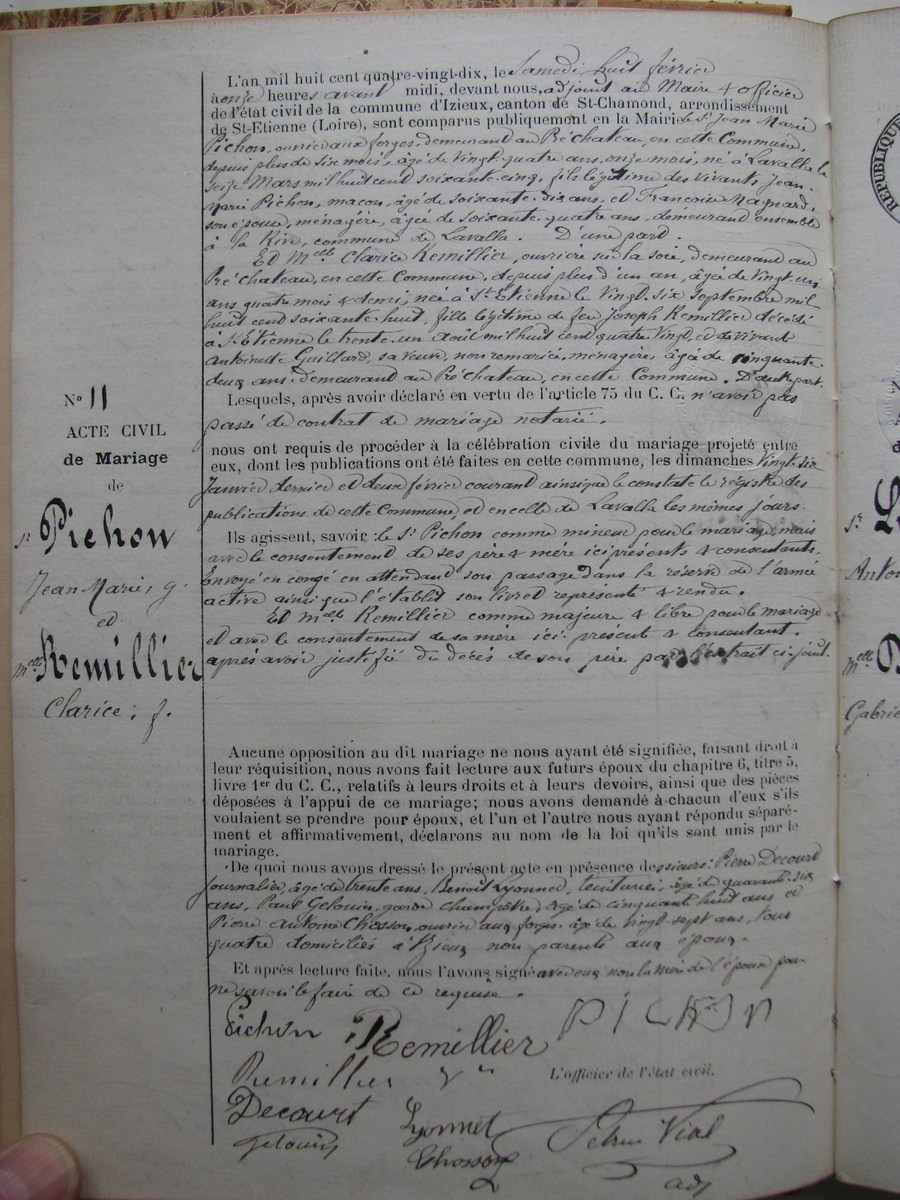 L'an mil huit cent quatre-vingt-dix, le Samedi huit février
à onze heures avant midi, devant nous, adjoint au Maire & officier
de l'état civil de la commune d'Izieux, canton de St-Chamond, arrondissement
de St-Etienne (Loire), sont comparus publiquement en la Mairie le Sr Jean Marie
Pichon, ouvrier aux forges, demeurant au Pré château, en cette Commune,
depuis plus de six mois, âgé de vingt-quatre ans, onze mois, né à Lavalla le
seize Mars mil huit cent soixante-cinq, fils légitime des vivants Jean-
Marie Pichon, maçon, âgé de soixante-dix ans, et Francoise Magnard,
son épouse, ménagère, âgée de soixante-quatre ans, demeurant ensemble
à la Rive, commune de Lavalla. D'une part.
Et Melle Clarice Remillier, ouvrière sur la soie, demeurant au
Pré château, en cette Commune, depuis plus d'un an, âgée de vingt-un
ans quatre mois & demi, née à St-Etienne le vingt-six septembre mil
huit cent soixante-huit, fille légitime de feu Joseph Remillier décédé
à St-Etienne le trente-un août mil huit cent quatre vingt, et de vivante
Antoinette Guillard, sa veuve, non remariée, ménagère, âgée de cinquante-
deux ans, demeurant au Pré château, en cette Commune. D'autre part.
Lesquels, après avoir déclaré en vertu de l'article 75 du C. C. n'avoir pas
passé de contrat de mariage notarié.
nous ont requis de procéder à la célébration civile du mariage projeté entre
eux, dont les publications ont été faites en cette commune, les dimanches vingt-six
Janvier dernier et deux février courant ainsi que le constate le registre des
publications de cette Commune, et en celle de Lavalla les mêmes jours.
Ils agissent, savoir : le Sr Pichon comme mineur pour le mariage, mais
avec le consentement de ses père & mère ici présents & consentants.
Envoyé en congé en attendant son passage dans la réserve de l'armée
active ainsi que l'établit son livret représenté & rendu.
Et Melle Remillier comme majeure & libre pour le mariage
et avec le consentement de sa mère ici présent & consentant.
après avoir justifié du décès de son père par l'extrait ci-joint.
Nº 11
ACTE CIVIL
de Mariage
de
Sr Pichon
Jean Marie, g.
et
Melle Remillier
Clarice, f.
Aucune opposition au dit mariage ne nous ayant été signifiée, faisant droit à
leur réquisition, nous avons fait lecture aux futurs époux du chapitre 6, titre 5,
livre 1er du C. C., relatifs à leurs droits et à leurs devoirs, ainsi que des pièces
déposées à l'appui de ce mariage; nous avons demandé à chacun d'eux s'ils
voulaient se prendre pour époux, et l'un et l'autre nous ayant répondu séparé-
ment et affirmativement, déclarons au nom de la loi qu'ils sont unis par le
mariage.
De quoi nous avons dressé le présent acte en présence des sieurs : Pierre Decourt
Journalier, âgé de trente ans, Benoit Lyonnet, teinturier, âgé de quarante-six
ans, Paul Gelouin, garde champêtre, âgé de cinquante huit ans et
Pierre Antoine Chosson, ouvrier aux forges, âgé de vingt-sept ans, tous
quatre domiciliés à Izieux non parents aux époux.
Et après lecture faite, nous l'avons signé avec eux non la mère de l'époux pour
ne savoir le faire de ce requise.
Pichon Remillier PICHON
Remillier Ve
L'officier de l'état civil.
Decourt Lyonnet Vial
Gelouin Chosson adj
Sr
Anto
Melle
Gabrie
REPUBLIQUE